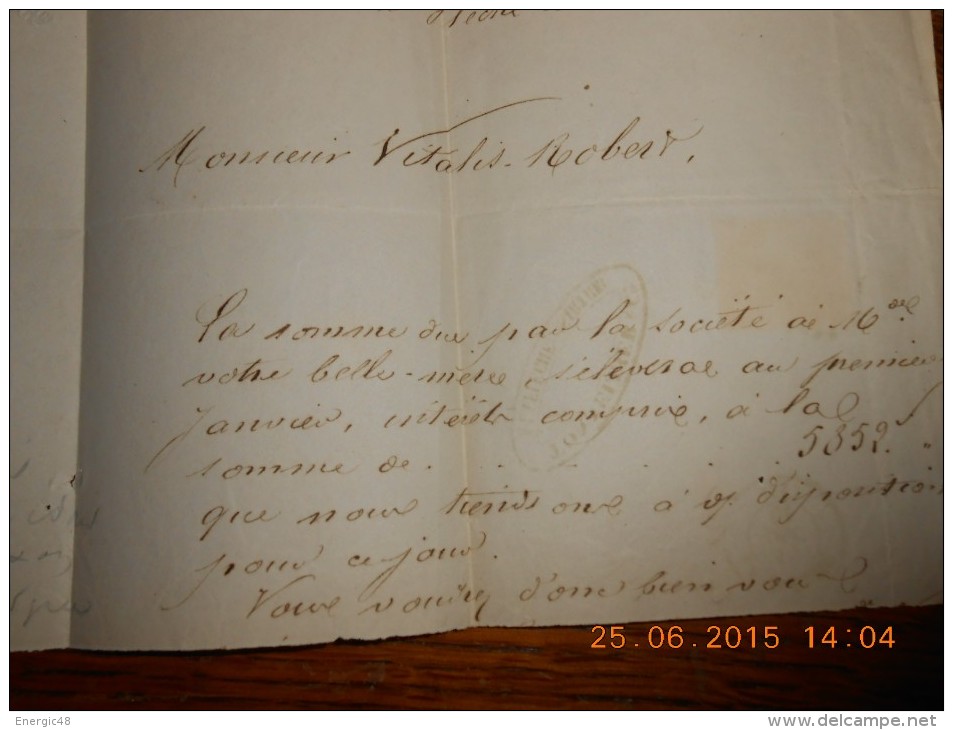 Monsieur Vitalis-Robert,
La somme due par la société à Mde
votre belle-mère, s'élevera au premier
Janvier, intérêts compris, à la
somme de . . . . . 5352. "
que nous tiendrons à v/ disposition
pour ce jour.
Vous voudrez donc bien vous
25.06.2015 14:04
Energic48
www.delcampe.net